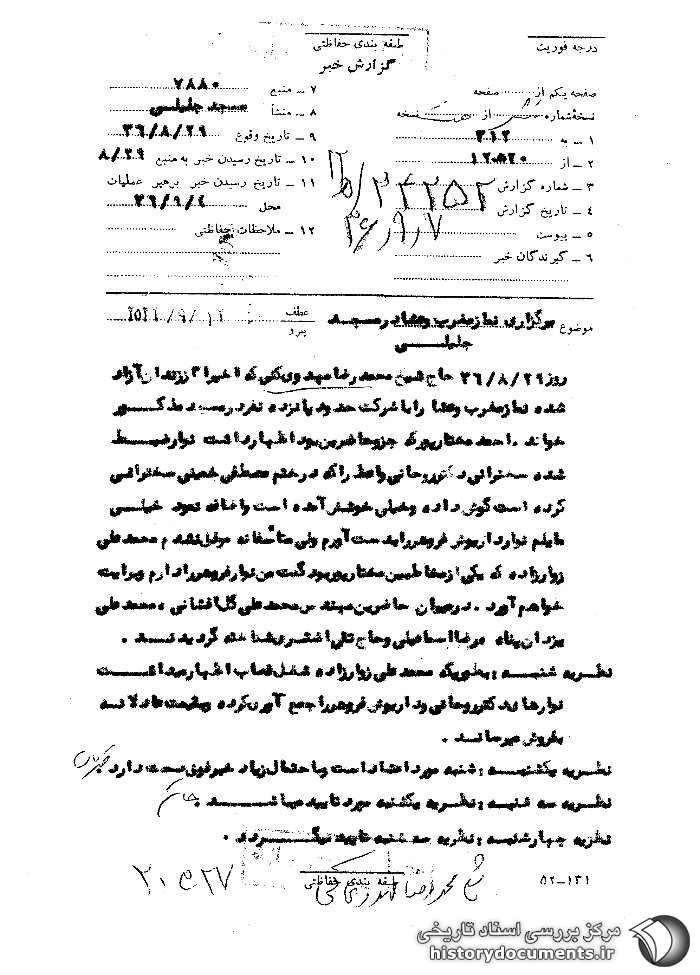 طبقه بندی حفاظتی
درجه فوریت
گزارش خبر
صفحه یکم از صفحه
نسخه شماره از نسخه
۱ – به ۳۱۲
۲ – از ۱۲۵۲۰
۳ – شماره گزارش ۲۴۲۵۲
۴ – تاریخ گزارش ۳۶/۹/۷
۵ – پیوست
۶ – گیرندگان خبر
۷ – منبع ۷۸۸۰
۸ – منشأ مسجد جلیلی
۹ – تاریخ وقوع ۳۶/۸/۲۹
۱۰ – تاریخ رسیدن خبر به منبع ۸/۲۹
۱۱ – تاریخ رسیدن خبر برهبر عملیات
محل ۳۶/۹/۶
۱۲ – ملاحظات حفاظتی
موضوع برگزاری نماز مغرب و عشاء در مسجد
جلیلی
عطف
پیرو
روز ۳۶/۸/۲۹ حاج شیخ محمد رضا مهدوی کنی که اخیرا از زندان آزاد
شده نماز مغرب و عشا را با شرکت حدود پانزده نفر در مسجد مذکور
خواند . احمد مختارپور که جزو حاضرین بود اظهار داشت نوار ضبط
شده سخنرانی دکتر روحانی واعظ را که در ختم مصطفی خمینی سخنرانی
کرده است گوش داده و خیلی خوشش آمده است و اضافه نمود خیلی
مایلم نوار داریوش فروهر را بدست آورم ولی متأسفانه موفق نشدم محمد علی
زوارزاده که یکی از مخاطبین مختارپور بود گفت من نوار فروهر را دارم و برایت
خواهم آورد . در میان حاضرین مهندس محمد علی گل افشانی ، محمد علی
یزدان پناه مرضا اسماعیلی و حاج تقی اشتری شناخته گردیدند .
نظریه شنبه : بطوریکه محمد علی زوارزاده شغل قصاب اظهار میداشت
نوارهای دکتر روحانی و داریوش فروهر را جمع آوری کرده و بقیمت عادلانه
بفروش میرساند .
نظریه یکشنبه : شنبه مورد اعتماد است و با احتمال زیاد خبر فوق صحت دارد
نظریه سه شنبه : نظریه یکشنبه مورد تایید میباشد .
نظریه چهارشنبه : نظریه سه شنبه تایید میگردد .
طبقه بندی حفاظتی
۵۲–۱۳۱
مرکز بررسی اسناد تاریخی
historydocuments.ir